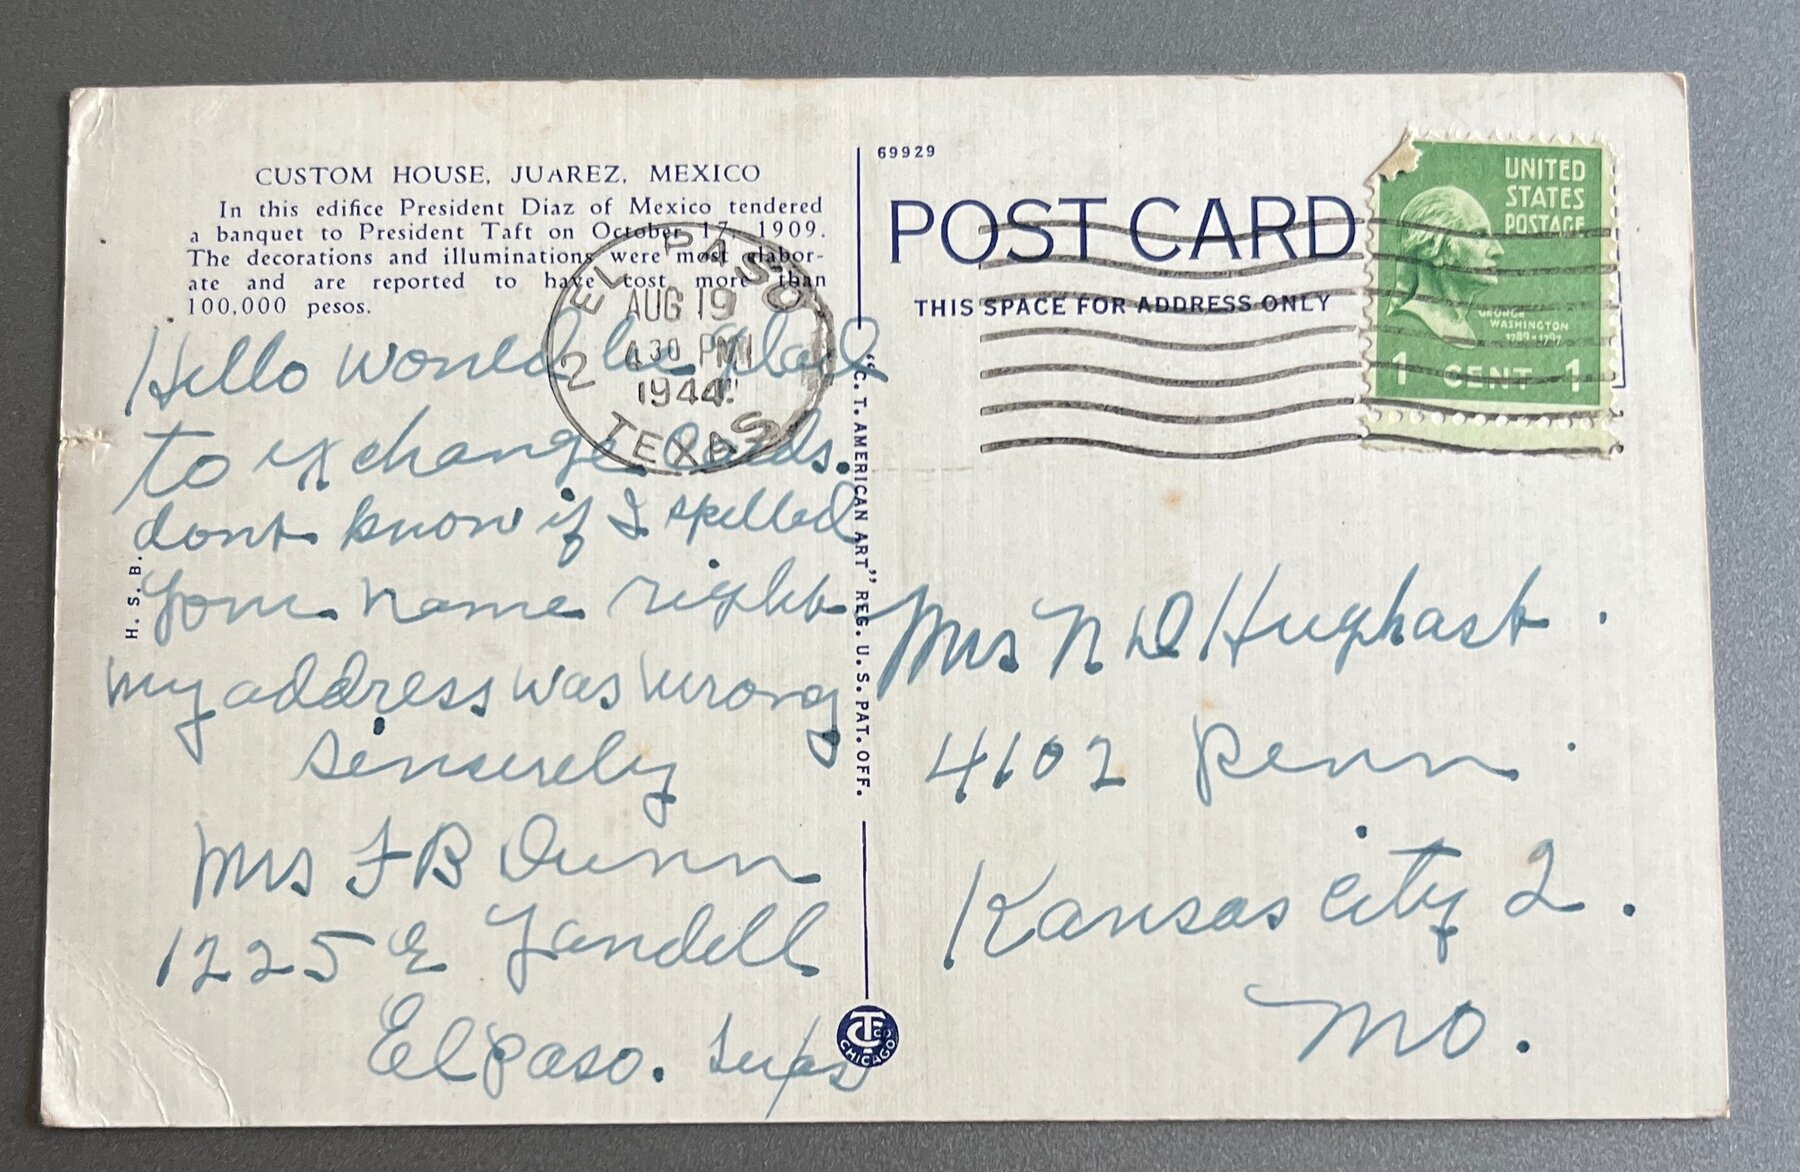 CUSTOM HOUSE, JUAREZ, MEXICO
In this edifice President Diaz of Mexico tendered
a banquet to President Taft on October 17, 1909.
The decorations and illuminations were most elabor-
ate and are reported to have cost more than
100,000 pesos.
Hello would be glad
to exchange Cards.
dont know if I spelled
your name right
my address was wrong
Sincerely
Mrs F B Dunn
1225 E Yandell
El Paso. Texas
H. S. B.
"C. T. AMERICAN ART" REG. U. S. PAT. OFF.
CT CO
CHICAGO
69929
POST CARD
THIS SPACE FOR ADDRESS ONLY
EL PASO 2
AUG 19
430 PM
1944
TEXAS
UNITED
STATES
POSTAGE
GEORGE
WASHINGTON
1789-1797
1 CENT 1
Mrs N D Hughast.
4102 Penn.
Kansas City 2.
Mo.